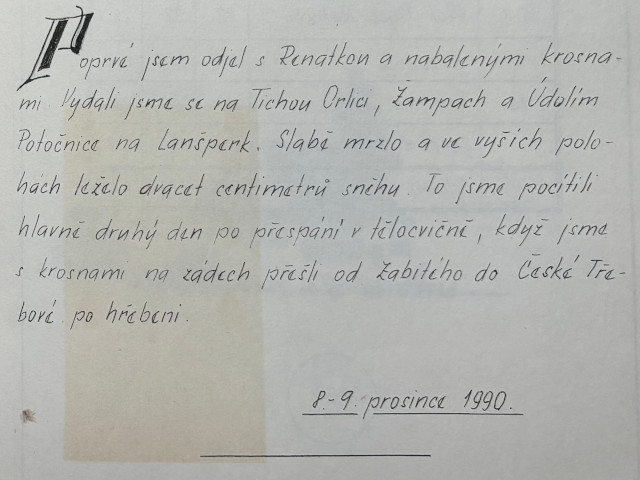 Poprvé jsem odjel s Renatkou a nabalenými krosna-
mi. Vydali jsme se na Tichou Orlici, Žampach a Údolím
Potočnice na Lanšperk. Slabě mrzlo a ve vyšších polo-
hách leželo dvacet centimetrů sněhu. To jsme pocítili
hlavně druhý den po přespání v tělocvičně, když jsme
s krosnami na zádech přešli od Zabitého do České Tře-
bové po hřebeni.
8.-9. prosince 1990.